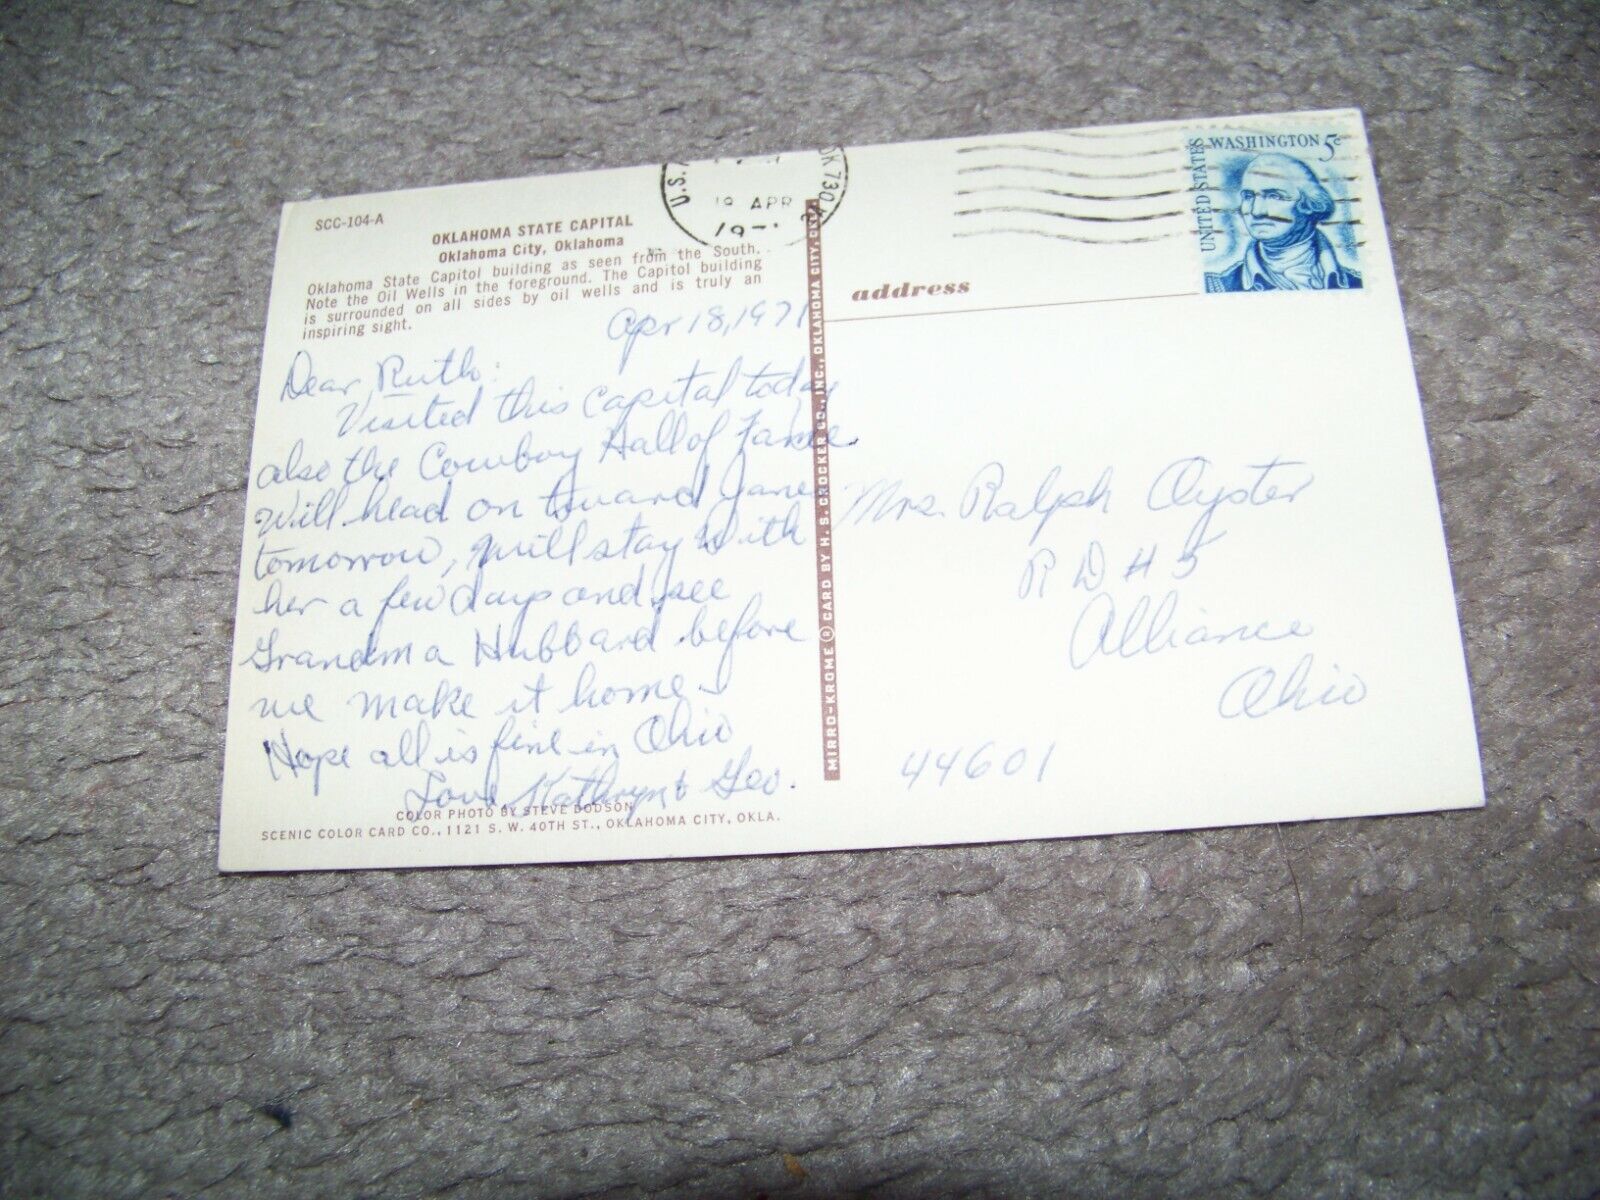 SCC-104-A
OKLAHOMA STATE CAPITAL
Oklahoma City, Oklahoma
Oklahoma State Capitol building as seen from the South.
Note the Oil Wells in the foreground. The Capitol building
is surrounded on all sides by oil wells and is truly an
inspiring sight.
Apr 18, 1971
Dear Ruth:
Visited this Capital today
also the Cowboy Hall of Fame
Will head on toward Janes
tomorrow, will stay with
her a few days and see
Grandma Hubbard before
we make it home.
Hope all is fine in Ohio
Love, Kathryn & Geo.
COLOR PHOTO BY STEVE DODSON
SCENIC COLOR CARD CO., 1121 S. W. 40TH ST., OKLAHOMA CITY, OKLA.
MIRRO-KROME ® CARD BY H. S. CROCKER CO., INC., OKLAHOMA CITY, OKLA.
U.S.
OK 730
19 APR
19
UNITED STATES
WASHINGTON 5c
address
Mrs. Ralph Oyster
R D # 5
Alliance
Ohio
44601